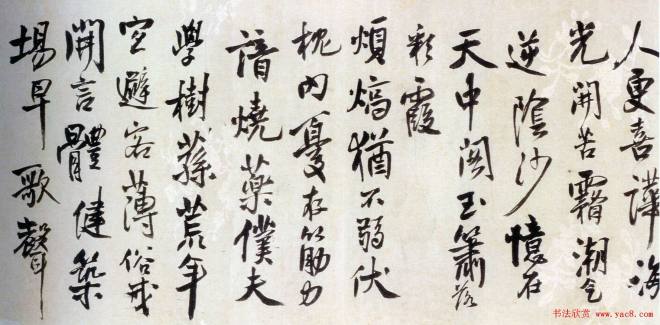 人更喜譁海
光開苦霜潮气
逆陰沙憶在
天中閣玉簫落
彩霞
煩熇猶不弱伏
枕内憂存筋力
諳燒藥僕夫
學樹蓀荒年
空避客薄俗戒
開言體健築
場早歌聲
书法欣赏
www.yac8.com